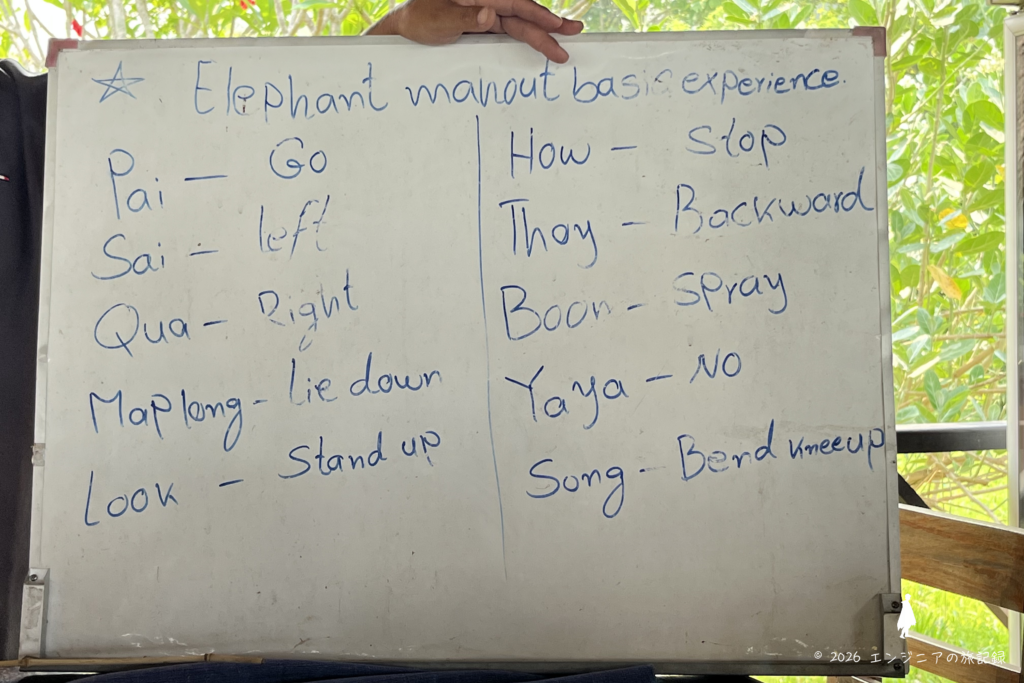 Elephant mahout basic experience.
Pai — Go
Sai — left
Qua — Right
Maplong - Lie down
Look — Stand up
How — Stop
Thoy — Backward
Boon - Spray
Yaya — NO
Song - Bend kneeup
© 2026 エンジニアの旅記録